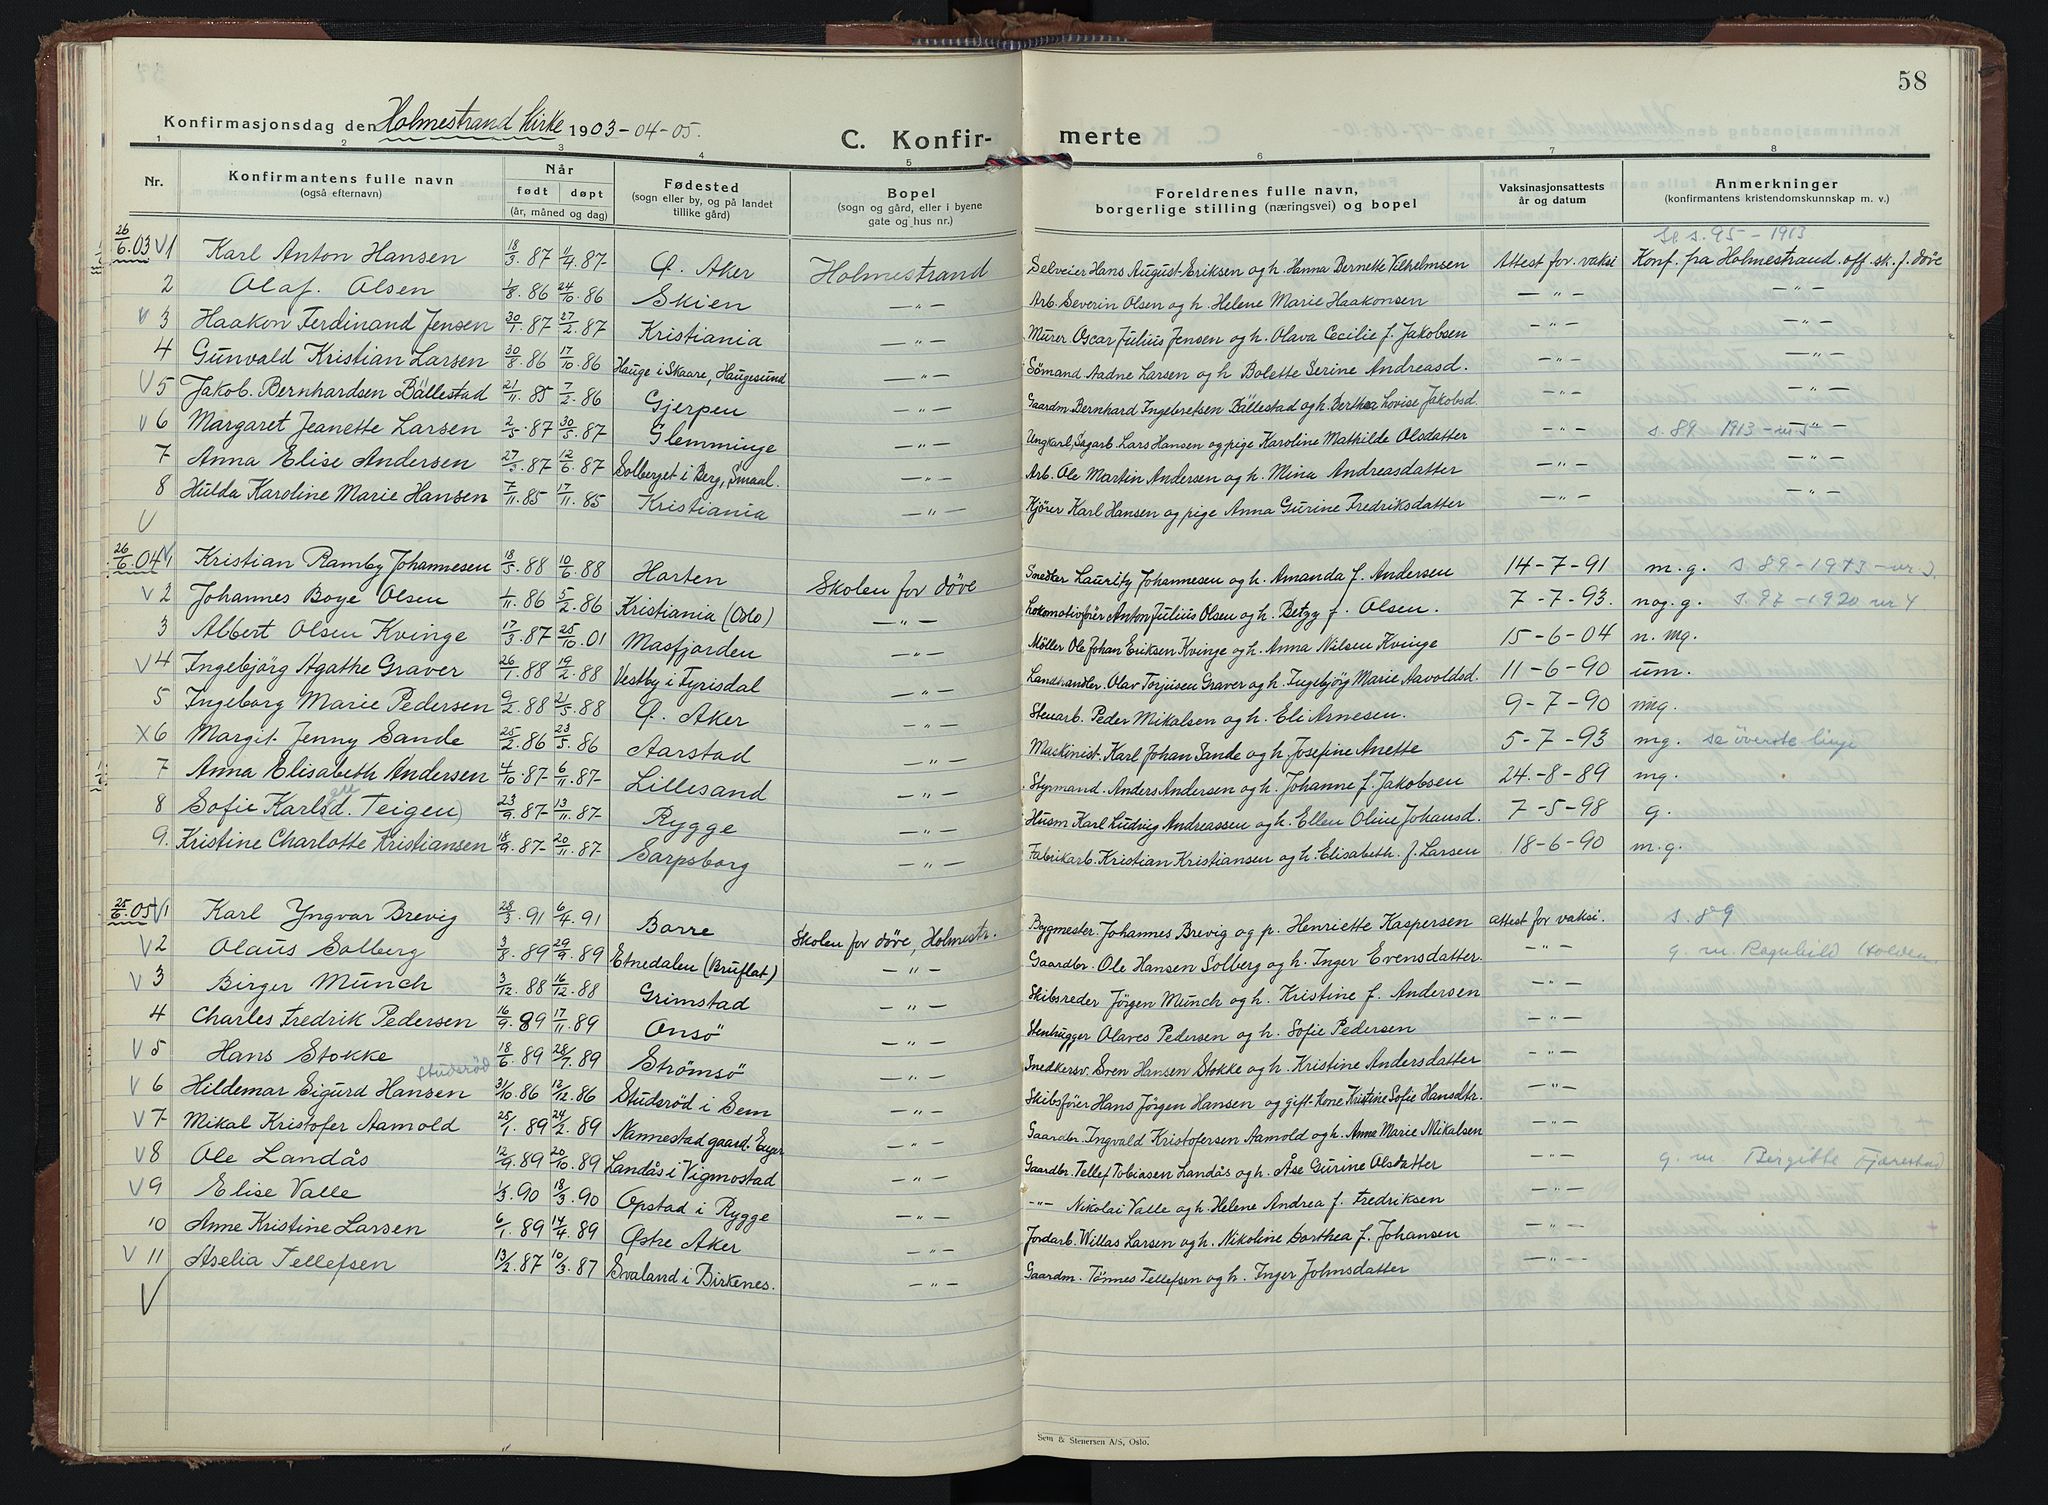 58
Konfirmasjonsdag den Holmestrand Kirke 1903-04-05.
C. Konfir- merte
1 2 3 4 5 6 7 8
Nr. Konfirmantens fulle navn (også efternavn) Når født døpt (år, måned og dag) Fødested (sogn eller by, og på landet tillike gård) Bopel (sogn og gård, eller i byene gate og hus nr.) Foreldrenes fulle navn, borgerlige stilling (næringsvei) og bopel Vaksinasjonsattests år og datum Anmerkninger (konfirmantens kristendomskunnskap m. v.)
se s. 95 - 1913
26/6.03 V 1 Karl Anton Hansen 18/3.87 11/4.87 Ø. Aker Holmestrand Selveier Hans August Eriksen og h. Hanna Bernette Vilhelmsen Attest for vaksi Konf. fra Holmestrand off. sk. f. døve
2 Olaf Olsen 1/8.86 24/10.86 Skien -"- Arb. Severin Olsen og h. Helene Marie Haakonsen -"- -"-
V 3 Haakon Ferdinand Jensen 30/1.87 27/2.87 Kristiania -"- Murer Oscar Julius Jensen og h. Olava Cecilie f. Jakobsen -"- -"-
4 Gunvald Kristian Larsen 30/8.86 17/10.86 Hauge i Skaare, Haugesund -"- Sömand Aadne Larsen og h Bolette Serine Andreasd. -"- -"-
V 5 Jakob Bernhardsen Bällestad 21/11.85 7/2.86 Gjerpen -"- Gaardm Bernhard Ingebretsen Bällestad og h. Berthea Lovise Jakobsd. -"- -"-
V 6 Margaret Jeanette Larsen 2/5.87 30/5.87 Glemminge -"- Ungkarl, Sagarb Lars Hansen og pige Karoline Mathilde Olsdatter -"- s. 89 1913 -"-
7 Anna Elise Andersen 27/3.87 12/6.87 Solberget i Berg, Smaal. -"- Arb. Ole Martin Andersen og h. Mina Andreasdatter -"- -"-
8 Hulda Karoline Marie Hansen 7/11.85 17/11.85 Kristiania -"- Kjörer Karl Hansen og pige Anna Gurine Fredriksdatter -"- -"-
V
26/6.04 V 1 Kristian Ramby Johannesen 18/5.88 10/6.88 Horten Skolen for døve Snedker Lauritz Johannesen og h. Amanda f. Andersen 14-7-91 m.g. s. 89-1913-nr 3.
V 2 Johannes Boye Olsen 1/11.86 5/2.86 Kristiania (Oslo) -"- Lokomotivfører Anton Julius Olsen og h. Betzy f. Olsen. 7-7-93. nog.g. s. 97-1920 nr 4
3 Albert Olsen Kvinge 17/3.87 25/10.01 Masfjorden -"- Møller Ole Johan Eriksen Kvinge og h. Anna Nilsen Kvinge 15-6-04 n. mg.
V 4 Ingebjörg Agathe Graver 26/1.88 19/2.88 Vestby i Fyrisdal -"- Landhandler Olav Torjusen Graver og h. Ingebjörg Marie Aavoldsd. 11-6-90 um.
5 Ingeborg Marie Pedersen 9/2.88 21/5.88 Ø. Aker -"- Stenarb. Peder Mikalsen og h. Eli Arnesen. 9-7-90 mg.
X 6 Margit Jenny Sande 25/2.86 23/5.86 Aarstad -"- Maskinist Karl Johan Sande og h. Josefine Anette 5-7-93 mg. se överste linje
7 Anna Elisabeth Andersen 4/10.87 6/11.87 Lillesand -"- Styrmand. Anders Andersen og h. Johanne f. Jakobsen 24-8-89 mg.
8 Sofie Karlsd. (Teigen) 23/9.87 13/11.87 Rygge -"- Husm Karl Ludvig Andreassen og h. Ellen Oline Johansd. 7-5-98 g.
9. Kristine Charlotte Kristiansen 18/9.87 20/11.87 Sarpsborg -"- Fabrikarb. Kristian Kristiansen og h. Elisabeth f. Larsen 18-6-90 m.g.
25/6.05 V 1 Karl Yngvar Brevig 28/3.91 6/4.91 Borre Skolen for døve, Holmestr. Bygmester. Johannes Brevig og p. Henriette Kaspersen attest for vaksi. s. 89
V 2 Olaus Solberg 3/8.89 29/9.89 Etnedalen (Bruflat) -"- Gaardbr. Ole Hansen Solberg og h. Inger Evensdatter -"- g. m. Ragnhild Holden.
V 3 Birger Münch 3/12.88 16/12.88 Grimstad -"- Skibsreder Jörgen Münch og h. Kristine f. Andersen -"-
4 Charles Fredrik Pedersen 16/9.89 17/11.89 Onsö -"- Stenhugger Olaves Pedersen og h. Sofie Pedersen -"-
V 5 Hans Stokke 18/6.89 28/7.89 Strömsö -"- Snedkersv. Sven Hansen Stokke og h. Kristine Andersdatter -"-
Studsröd
V 6 Hildemar Sigurd Hansen 31/10.86 12/12.86 Studsröd i Sem -"- Skibsfører Hans Jörgen Hansen og gift kone Kristine Sofie Hansdtr. -"-
V 7 Mikal Kristofer Aamold 25/1.89 24/2.89 Nannestad gaard. Eiger -"- Gaardbr. Ingvald Kristofersen Aamold og h. Anna Marie Mikalsen -"-
V 8 Ole Landås 12/9.89 20/10.89 Landås i Vigmostad -"- Gaardbr. Tellef Tobiasen Landås og h. Åse Gurine Olsdatter -"- g. m. Bergitte Fjærestad
V 9 Elise Valle 1/3.90 18/3.90 Opstad i Rygge -"- -"- Nikolai Valle og h. Helene Andrea f. Fredriksen -"-
10 Anne Kristine Larsen 6/1.89 14/4.89 Østre Aker -"- Jordarb. Willas Larsen og h. Nikoline Dorthea f. Johansen -"-
V 11 Aselia Tellefsen 13/2.87 10/3.87 Svaland i Birkenes. -"- Gaardm. Tönnes Tellefsen og h. Inger Johnsdatter -"-
V
Sem & Stenersen A/S, Oslo.